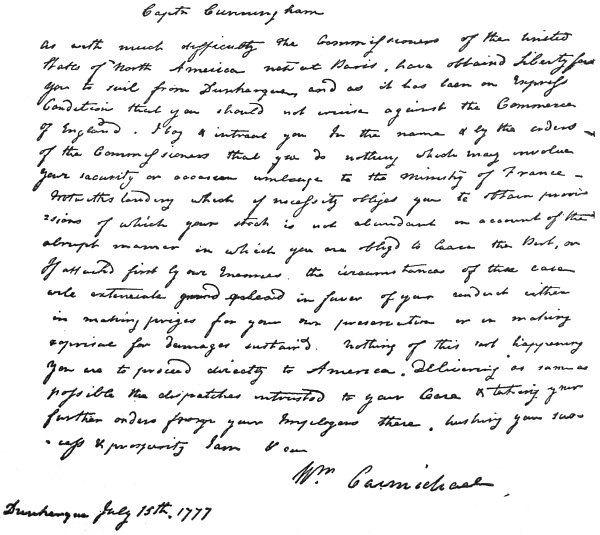 Captn Cunningham
As with much difficulty the Commissioners of the United
States of North America now at Paris, have obtaind Liberty for
you to sail from Dunkerque, and as it has been on Express
Condition that you should not cruise against the Commerce
of England. I beg & intreat you In the name & by the orders
of the Commissioners that you do nothing which may involve
your security or occasion umbrage to the Ministry of France
Notwithstanding which if necessity obliges you to obtain provi
sions of which your stock is not abundant on account of the
abrupt manner in which you are obligd to leave the Port, or
If attackd first by our Enemies. the circumstances of the case
will extenuate plead in favor of your conduct either
in making prizes for your own preservation or in making
reprisal for damages sustaind. Nothing of this sort happening
You are to proceed directly to America. Delivering as soon as
possible the dispatches intrusted to your Care & taking your
further orders from your Employers there, wishing you suc
cess & prosperity I am &
Wm Carmichael
Dunkerque July 15th. 1777